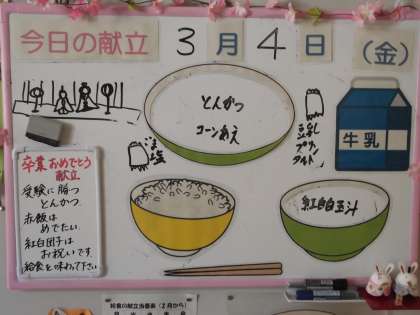 今日の献立 3月4日(金)
とんかつ
コーンあえ
ごま塩
豆乳
プリン
タルト
牛乳
紅白玉汁
卒業おめでとう
献立
受験に勝つ
とんかつ
赤飯は
めでたい
紅白団子は
お祝いです
給食を味わって下さい